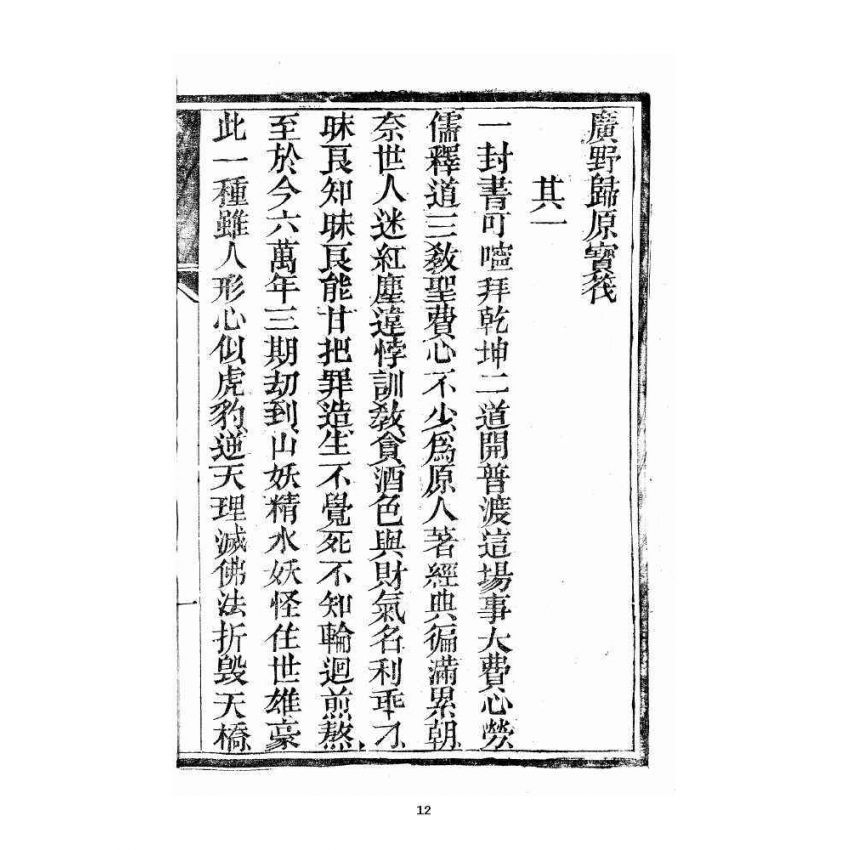 廣野歸原寶筏
其一
一封書叮嚀拜乾坤二道開普渡這塲事大費心勞
儒釋道三敎聖費心不少爲原人著經典徧滿累朝
奈世人迷紅塵違悖訓敎貪酒色與財氣名利乖刁
昧良知昧良能甘把罪造生不覺死不知輪迴煎熬
至於今六萬年三期刧到山妖精水妖怪住世雄豪
此一種雖人形心似虎豹逆天理滅佛法折毁天橋
一
12